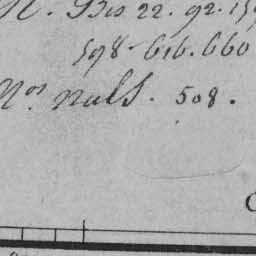 N. Bis 22. 92. 159
598. 616. 660
Nos. nuls. 508.